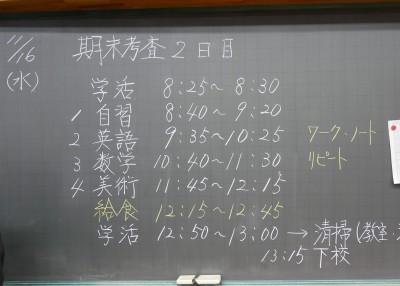 11/16
(水)
期末考査2日目
学活 8:25〜8:30
1 自習 8:40〜9:20
2 英語 9:35〜10:25 ワーク・ノート
3 数学 10:40〜11:30 リピート
4 美術 11:45〜12:15
給食 12:15〜12:45
学活 12:50〜13:00 → 清掃(教室・
13:15 下校